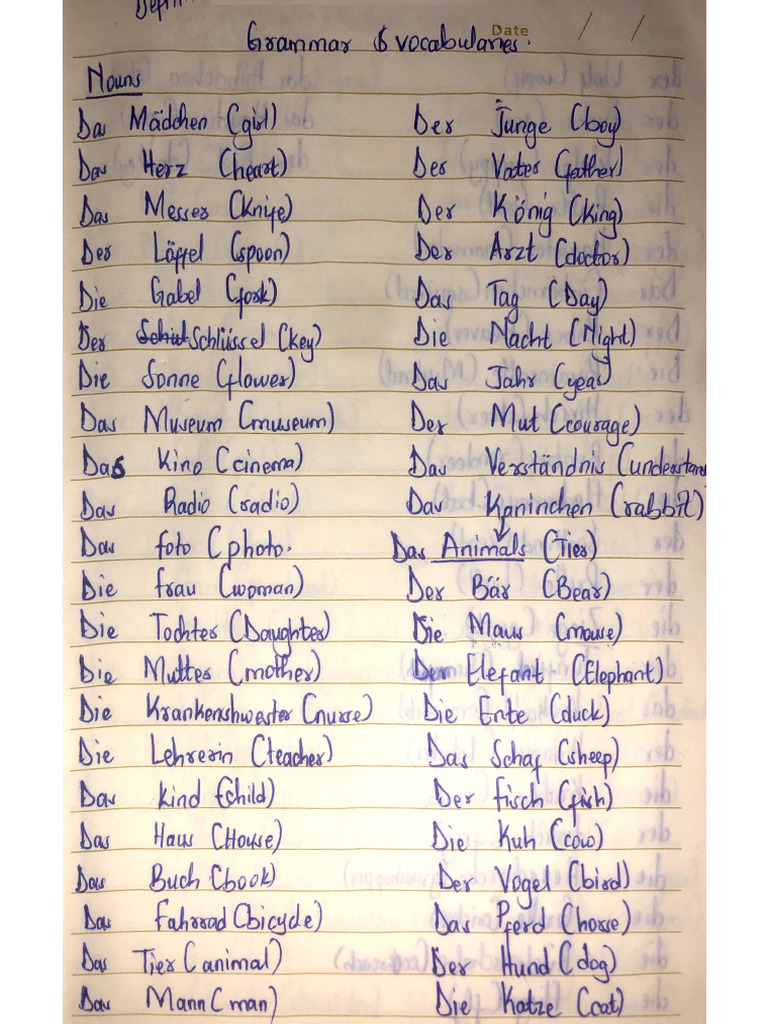 Date / /
Grammar & vocabularies.
Nouns
Das Mädchen (girl)
Das Herz (heart)
Das Messer (Knife)
Der Löffel (spoon)
Die Gabel (fork)
Der Schlüssel (key)
Die Sonne (flower)
Das Museum (museum)
Das Kino (cinema)
Das Radio (radio)
Das foto (photo.
Die frau (woman)
Die Tochter (Daughter)
Die Mutter (mother)
Die Krankenshwester (nurse)
Die Lehrerin (teacher)
Das Kind (child)
Das Haus (House)
Das Buch (book)
Das Fahrrad (bicycle)
Das Tier (animal)
Das Mann (man)
Der Junge (boy)
Der Vater (father)
Der König (King)
Der Arzt (doctor)
Das Tag (Day)
Die Nacht (Night)
Das Jahr (year)
Der Mut (courage)
Das Verständnis (understan
Das Kaninchen (rabbit)
Das Animals (Tier)
Der Bär (Bear)
Die Maus (mouse)
Der Elefant (Elephant)
Die Ente (duck)
Das Schaf (sheep)
Der fisch (fish)
Die Kuh (cow)
Der Vogel (bird)
Das Pferd (horse)
Der Hund (dog)
Die Katze (cat)